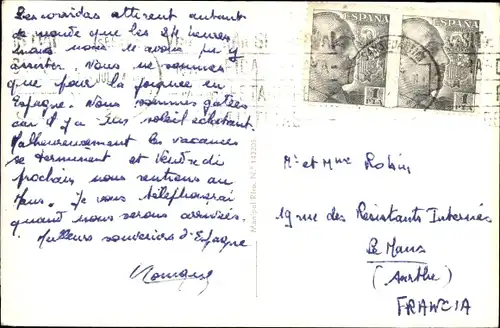 Les corridas attirent autant
de monde que les 24 heures.
mais nous n'avons pu y
assister. Nous ne sommes
que pour la journée en
Espagne. Nous sommes gâtées
car il y a un soleil éclatant.
Malheureusement les vacances
se terminent et Vendredi
prochain nous rentrons au
Mans. Je vous téléphonerai
quand nous serons arrivées.
Meilleurs souvenirs d'Espagne
ESPAÑA
1
PTA
ESPAÑA
1
PTA
Mr et Mme Robin
19 rue des Résistants Internés
Le Mans
(Sarthe)
FRANCIA